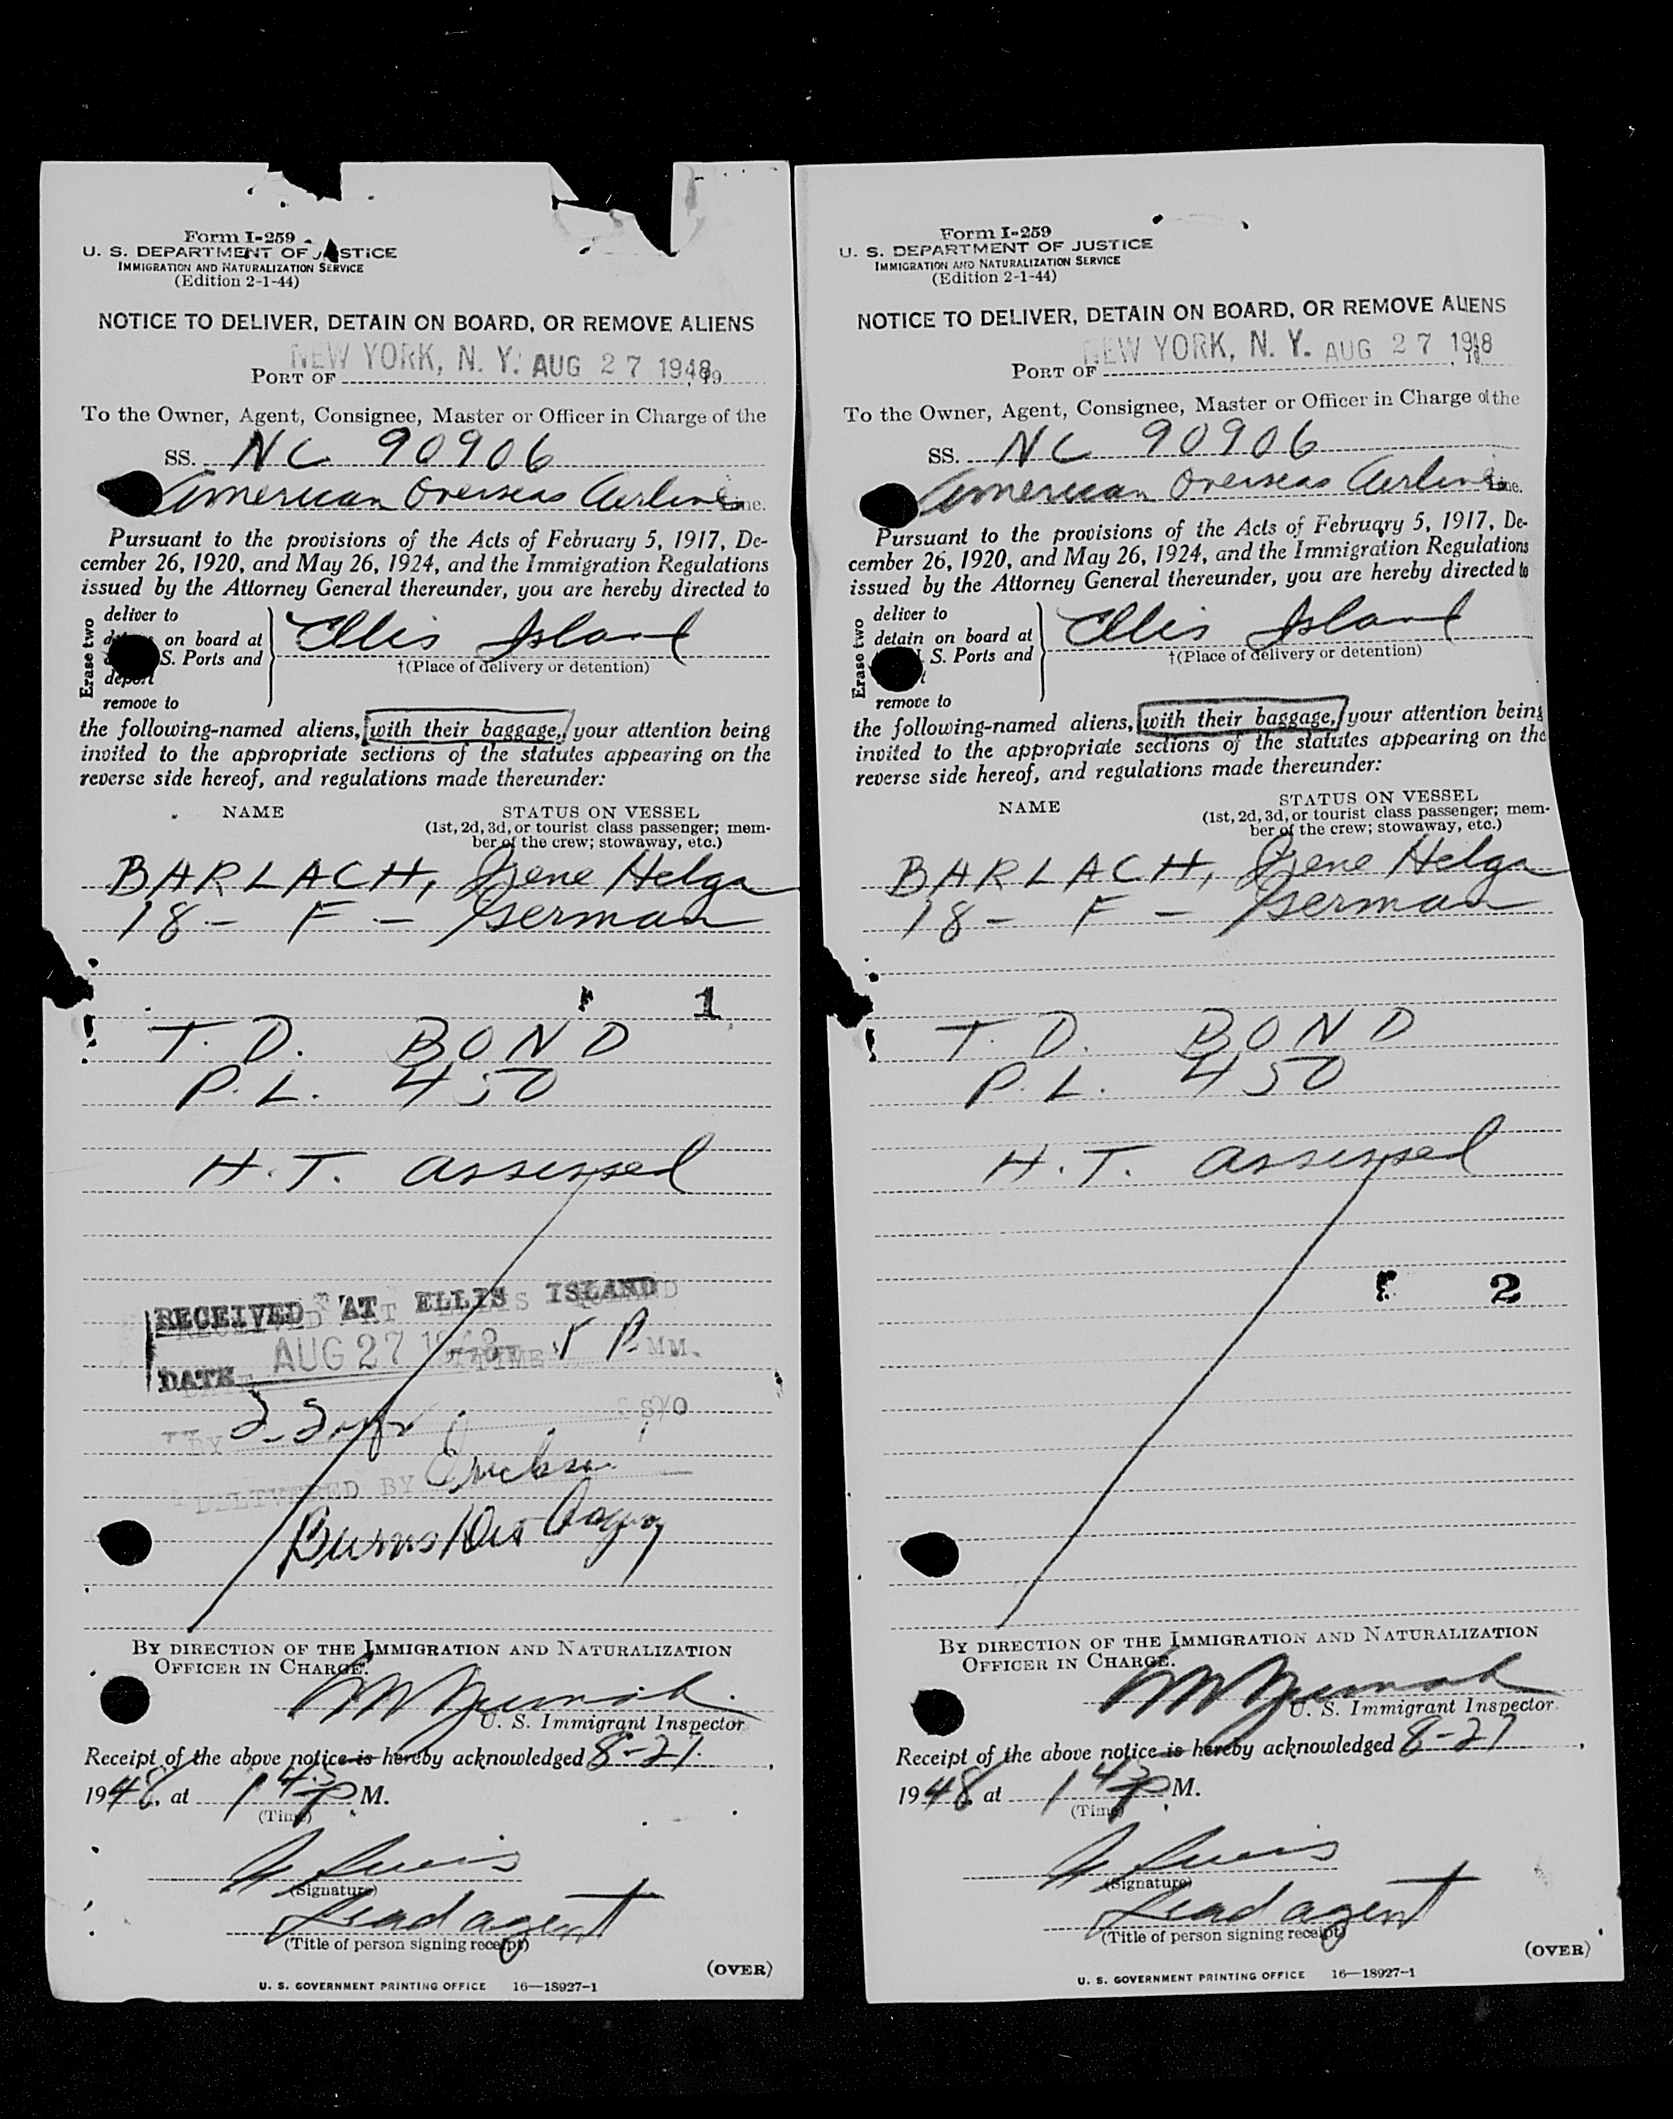 Form I-259
U. S. DEPARTMENT OF JUSTICE
IMMIGRATION AND NATURALIZATION SERVICE
(Edition 2-1-44)
NOTICE TO DELIVER, DETAIN ON BOARD, OR REMOVE ALIENS
NEW YORK, N. Y. AUG 27 1948
PORT OF , 19
To the Owner, Agent, Consignee, Master or Officer in Charge of the
SS. NC 90906
American Overseas Airline Line.
Pursuant to the provisions of the Acts of February 5, 1917, De-
cember 26, 1920, and May 26, 1924, and the Immigration Regulations
issued by the Attorney General thereunder, you are hereby directed to
Erase two
deliver to
on board at
S. Ports and
deport
remove to
Ellis Island
†(Place of delivery or detention)
the following-named aliens, with their baggage, your attention being
invited to the appropriate sections of the statutes appearing on the
reverse side hereof, and regulations made thereunder:
NAME
STATUS ON VESSEL
(1st, 2d, 3d, or tourist class passenger; mem-
ber of the crew; stowaway, etc.)
BARLACH, Irene Helga
18 - F - German
1
T. D. BOND
P. L. 450
H. T. assessed
RECEIVED AT ELLIS ISLAND
DATE AUG 27 1948 TIME 5 P M.
BY S/O
DELIVERED BY
Burns Det Agency
BY DIRECTION OF THE IMMIGRATION AND NATURALIZATION
OFFICER IN CHARGE.
U. S. Immigrant Inspector
Receipt of the above notice is hereby acknowledged 8-27,
1948, at 1 43 P M.
(Time)
(Signature)
Lead agent
(Title of person signing receipt)
(OVER)
U. S. GOVERNMENT PRINTING OFFICE 16—18927-1
Form I-259
U. S. DEPARTMENT OF JUSTICE
IMMIGRATION AND NATURALIZATION SERVICE
(Edition 2-1-44)
NOTICE TO DELIVER, DETAIN ON BOARD, OR REMOVE ALIENS
NEW YORK, N. Y. AUG 27 1948
PORT OF , 19
To the Owner, Agent, Consignee, Master or Officer in Charge of the
SS. NC 90906
American Overseas Airline Line.
Pursuant to the provisions of the Acts of February 5, 1917, De-
cember 26, 1920, and May 26, 1924, and the Immigration Regulations
issued by the Attorney General thereunder, you are hereby directed to
Erase two
deliver to
detain on board at
S. Ports and
remove to
Ellis Island
†(Place of delivery or detention)
the following-named aliens, with their baggage, your attention being
invited to the appropriate sections of the statutes appearing on the
reverse side hereof, and regulations made thereunder:
NAME
STATUS ON VESSEL
(1st, 2d, 3d, or tourist class passenger; mem-
ber of the crew; stowaway, etc.)
BARLACH, Irene Helga
18 - F - German
T. D. BOND
P. L. 450
H. T. assessed
2
BY DIRECTION OF THE IMMIGRATION AND NATURALIZATION
OFFICER IN CHARGE.
U. S. Immigrant Inspector.
Receipt of the above notice is hereby acknowledged 8-27,
1948 at 1 43 P M.
(Time)
(Signature)
Lead agent
(Title of person signing receipt)
(OVER)
U. S. GOVERNMENT PRINTING OFFICE 16—18927-1